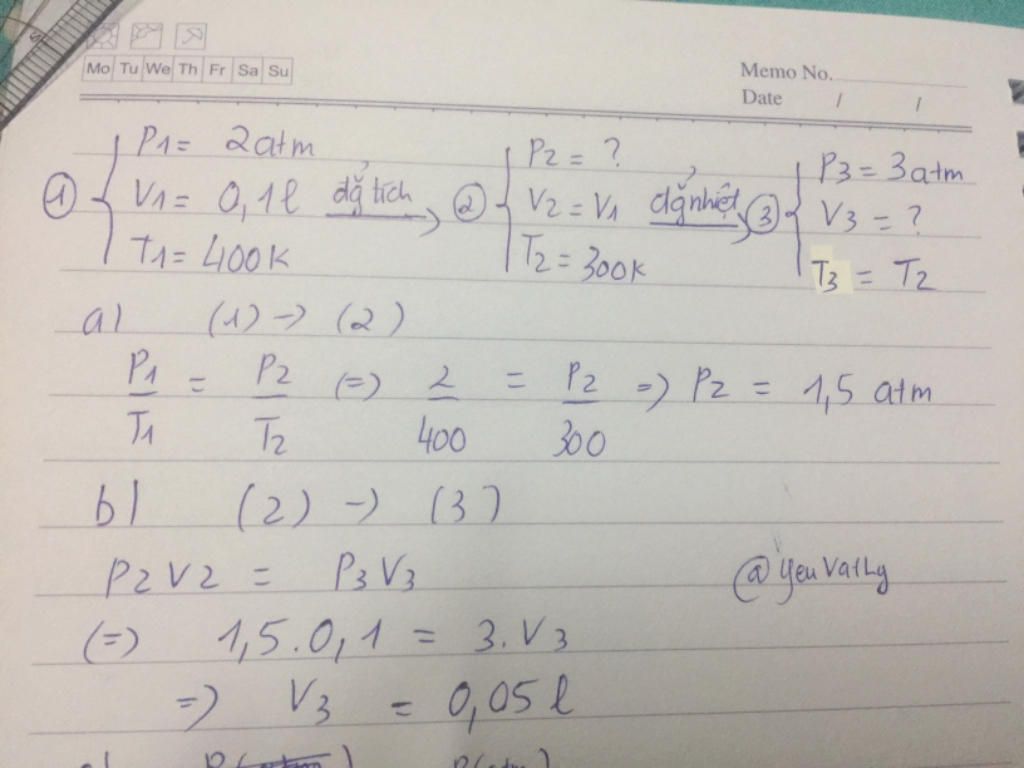 Mo Tu We Th Fr Sa Su
Memo No.
Date / /
① { P1 = 2atm
V1 = 0,1l
T1 = 400K
đẳng tích →
② { P2 = ?
V2 = V1
T2 = 300K
đẳng nhiệt →
③ { P3 = 3atm
V3 = ?
T3 = T2
a) (1) → (2)
P1/T1 = P2/T2 (=) 2/400 = P2/300 => P2 = 1,5 atm
b) (2) → (3)
P2V2 = P3V3
@YeuVatLy
(=) 1,5.0,1 = 3.V3
=) V3 = 0,05 l